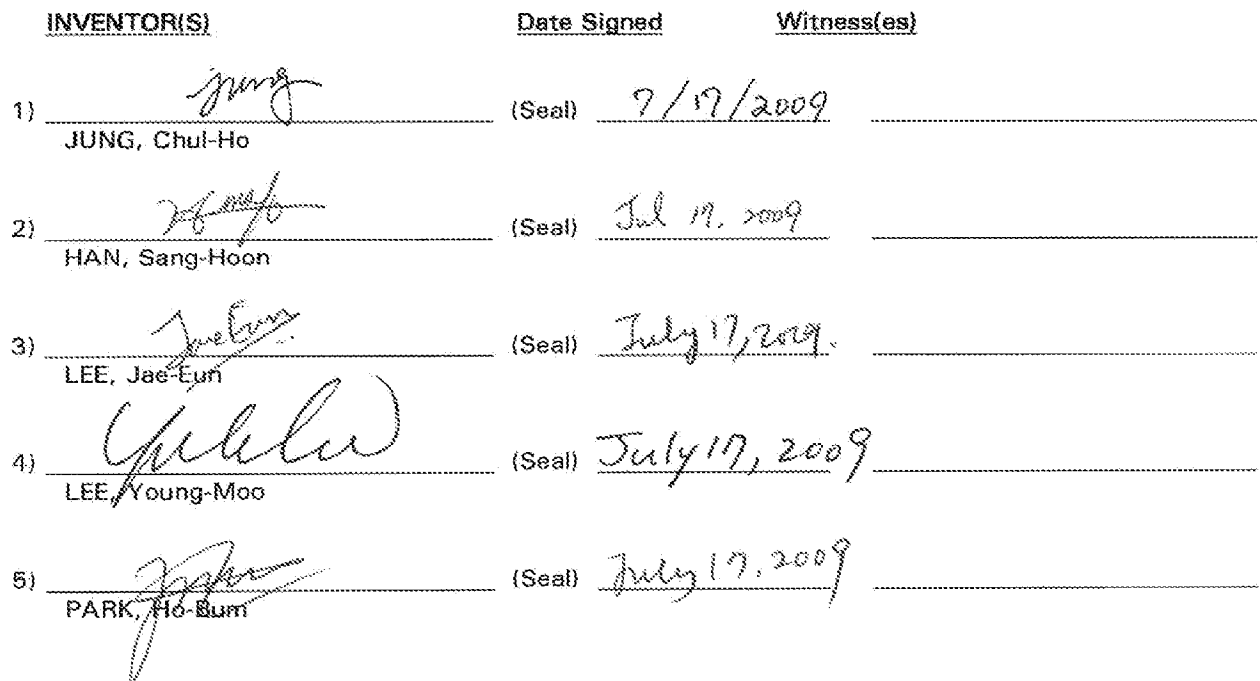 INVENTOR(S) Date Signed Witness(es)
1) jung (Seal) 7/17/2009
JUNG, Chul-Ho
2) (Seal) Jul 17, 2009
HAN, Sang-Hoon
3) JaeEun (Seal) July 17, 2009.
LEE, Jae-Eun
4) (Seal) July 17, 2009
LEE, Young-Moo
5) (Seal) July 17, 2009
PARK, Ho-Bum